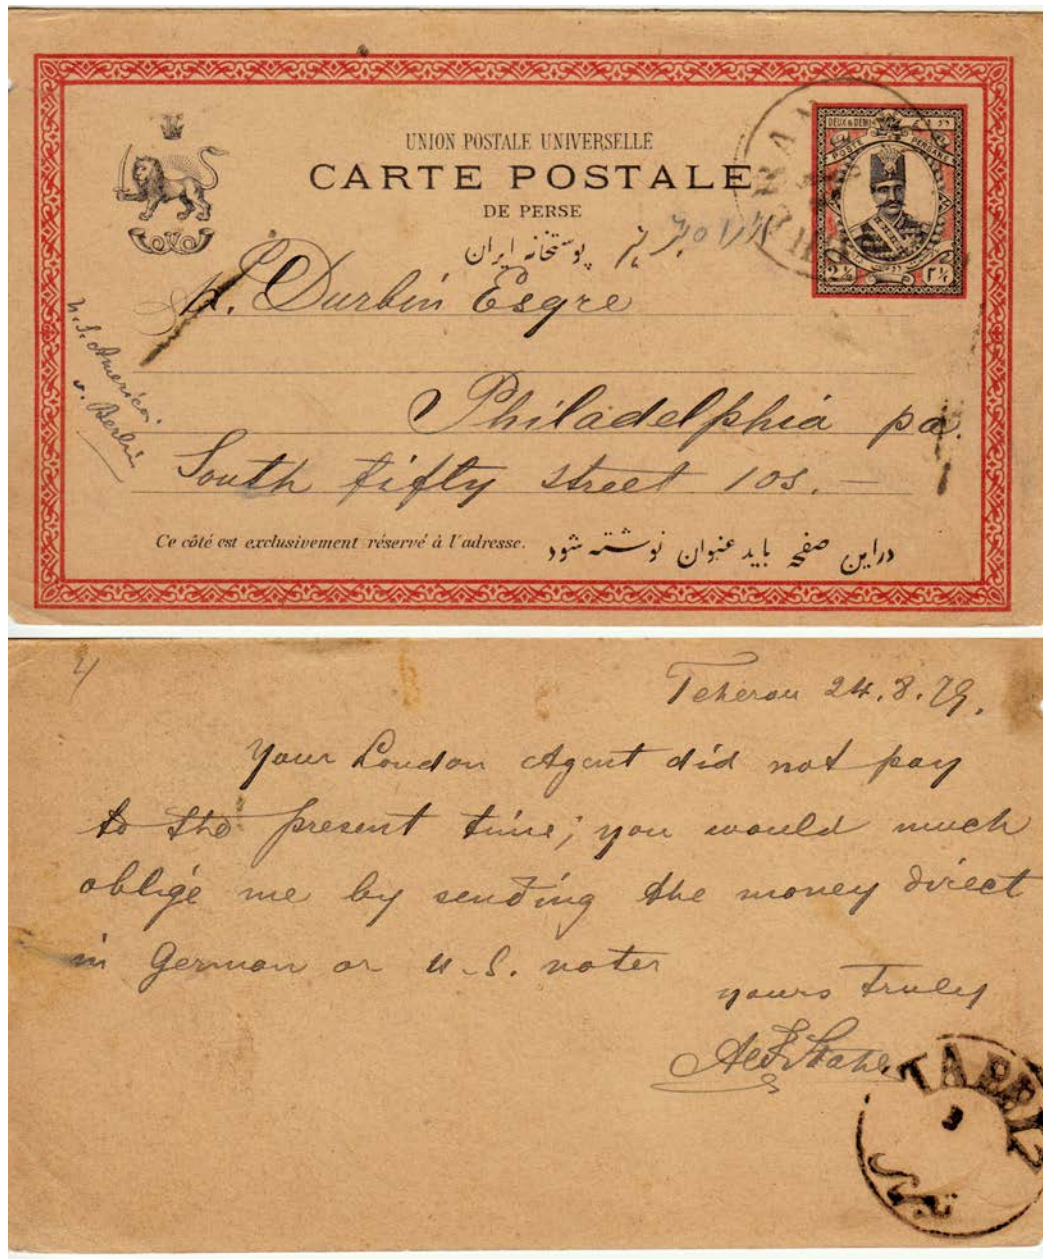 UNION POSTALE UNIVERSELLE
CARTE POSTALE
DE PERSE
پوستخانه ایران
DEUX & DEMI
POSTE PERSANE
2½ ۲½
H. Durbin Esqre
Philadelphia pa.
South fifty street 103. —
U.S. America.
v. Berlin
Ce côté est exclusivement réservé à l'adresse.
دراین صفحه باید عنوان نوشته شود
Teheran 24.8.79.
Your London Agent did not pay
to the present time; you would much
oblige me by sending the money direct
in German or U.S. notes
yours truly
TABRIZ
3
تبریز